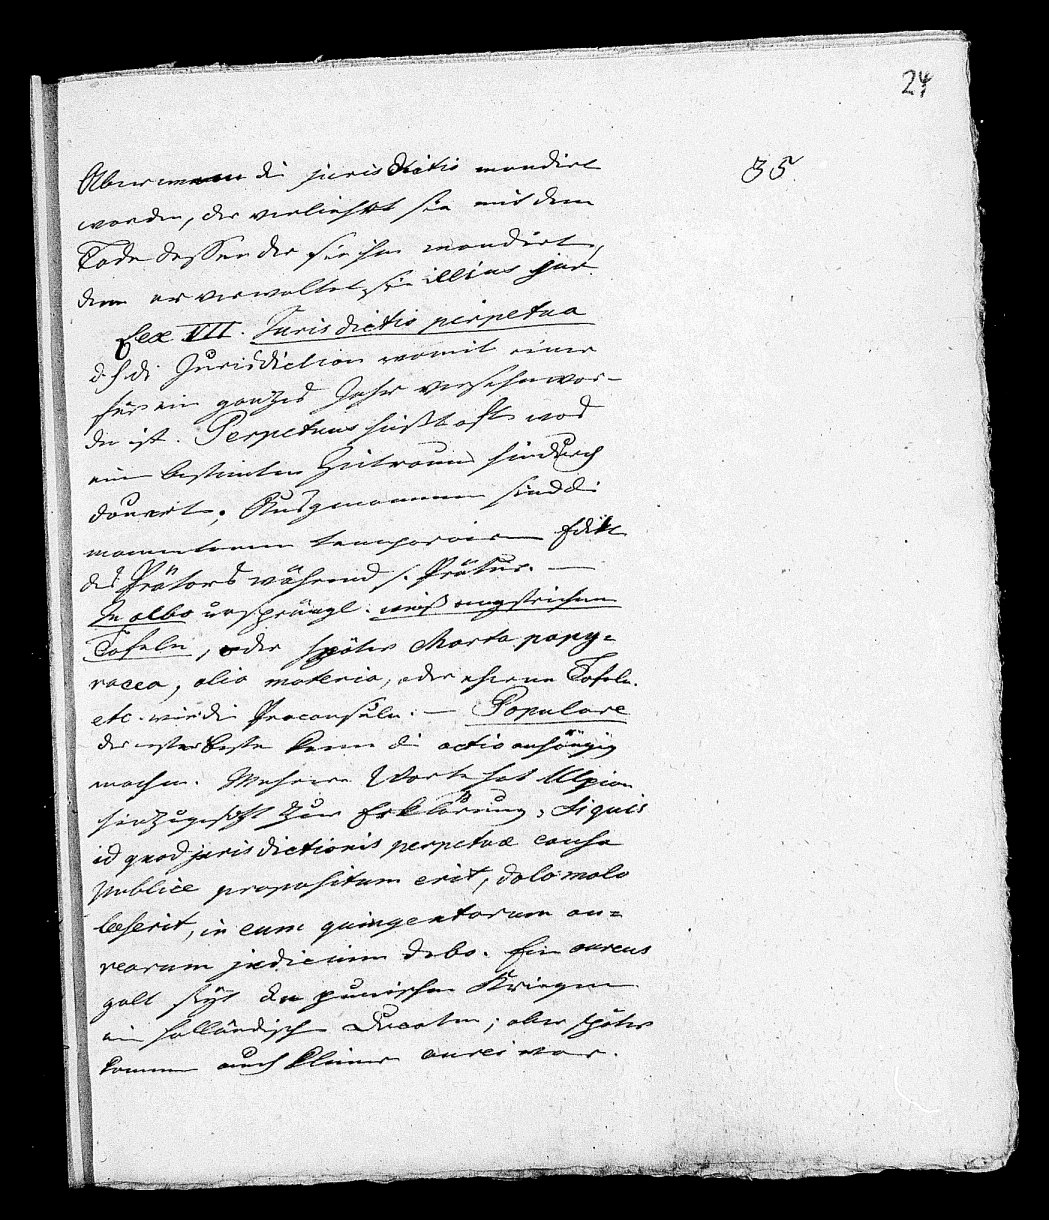 24
35
Aber wem die jurisdictio mandirt
worden, der verliehrt sie mit dem
Tode dessen der sie ihm mandirt,
denn er verwaltet sie illius jure
Lex VII. Jurisdictio perpetua
d. h. die Jurisdiction womit einer
für ein ganzes Jahr versehn wor-
den ist. Perpetuus heißt oft was
einen bestimten Zeitraum hindurch
dauert. Ausgenommen sind die
momentanen temporairen Edikte
des Prätors während s. Prätur. —
In albo ursprüngl. weiß angestrichene
Tafeln, oder später Charta papy=
racea, alia materia, oder eherne Tafeln.
etc. wie die Proconsuln. — Populare
der erste beste kann die actio anhängig
machen. Mehrere Worte hat Ulpian
hinzugesetzt zur Erklärung, Siquis
id quod jurisdictionis perpetuæ causa
publice propositum erit, dolo malo
læserit, in eum quingentorum au=
reorum judicium dabo. Ein aureus
galt seit den punischen Kriegen
ein holländischen Ducaten; aber später
kommen auch kleinere aurei vor.